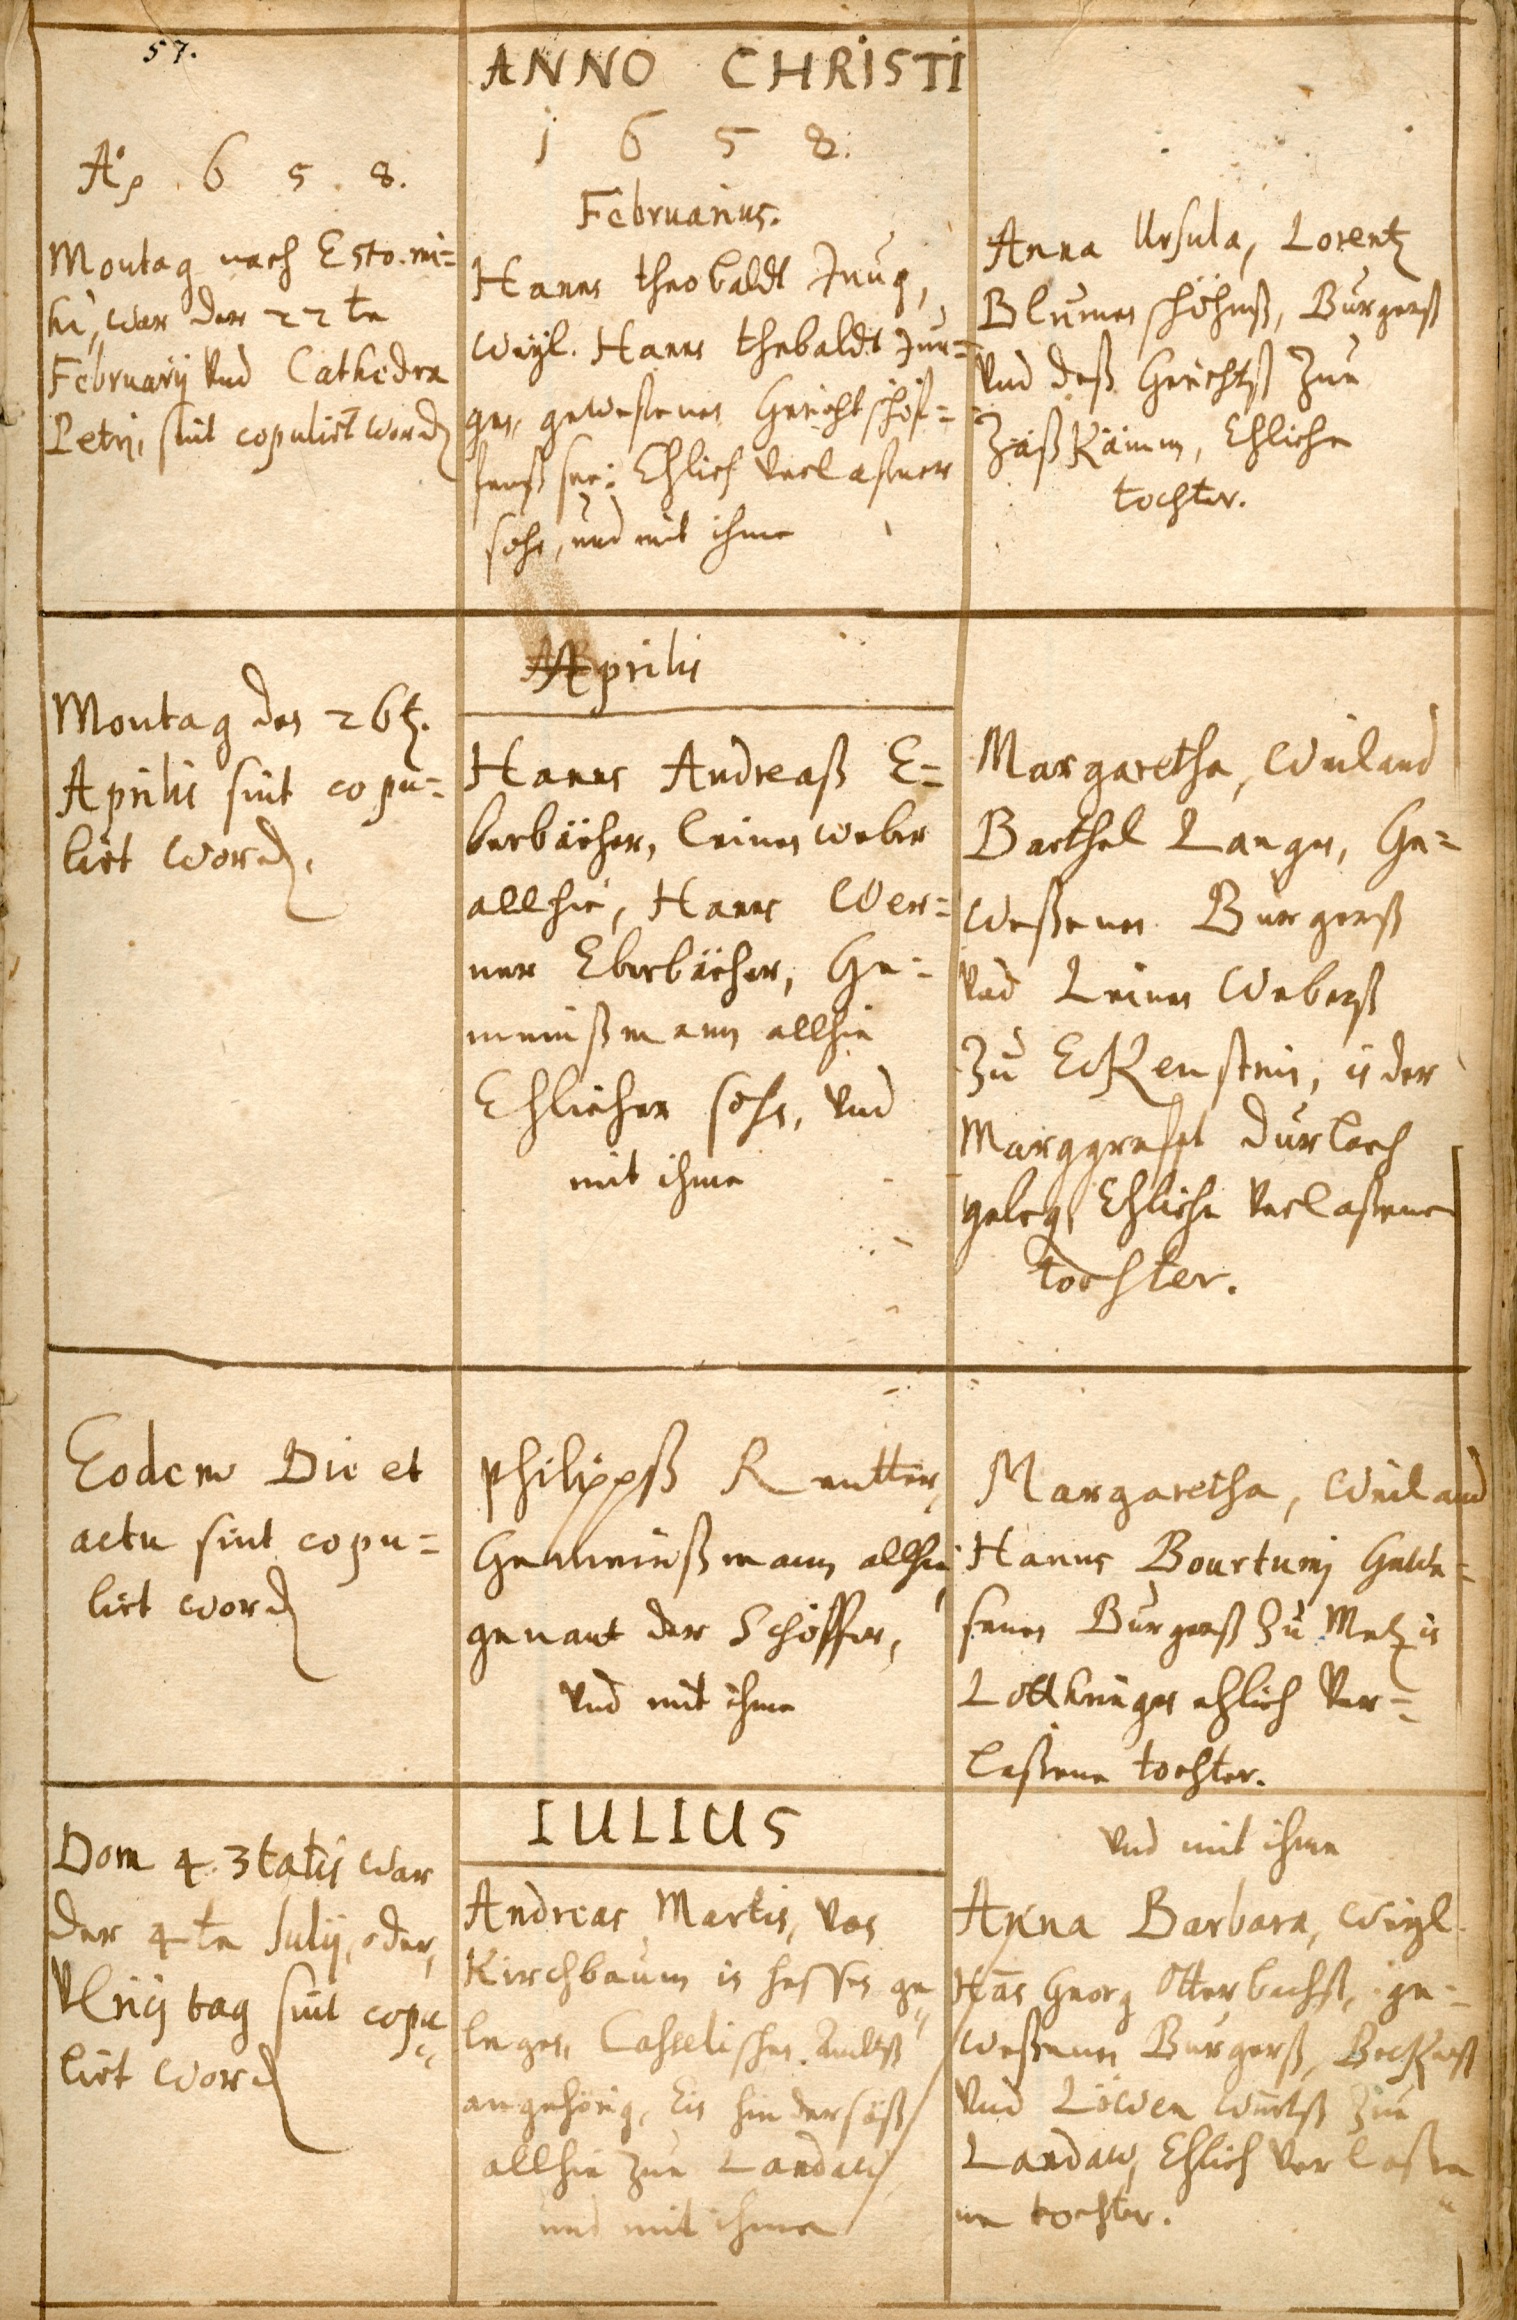 57.
Ao. 6 5 8.
Montag nach Esto mi=
hi, war der 22te
Februarij vnd Cathedra
Petri, sint copulirt word
ANNO CHRISTI
1 6 5 8.
Februarius.
Hanns theobaldt Jung,
Weyl. Hanns thebaldt Jun=
ges, gewesenen Gerichtschöf=
fenß see: Ehlich verlaßner
sohn, und mit ihme
Anna Ursula, Lorentz
Blumen schöhnß, Burgerß
vnd deß Gerichtß Zue
Ehliche
tochter.
Montag den 26t.
Aprilis sint copu=
lirt word.
Aprilis
Hanns Andreaß E=
berbächer, leinen weber
allhie, Hanns Wer=
ner Eberbächer, Ge=
meinßmann allhie
Ehlicher sohn, vnd
mit ihme
Margaretha, Weiland
Barthel Langen, Ge=
weßenen Burgerß
vnd Leinen Weberß
Zu Eckenstein, in der
Marggrafft Durlach
geleg, Ehliche verlaßene
tochter.
Eodem Die et
actu sint copu=
lirt word
Philippß Reutter,
Gemeinßmann allhie,
genant der Schöffer,
vnd mit ihme
Margaretha, Weiland
Hanns Gewe=
senen Burgerß Zu Metz in
Lotthringen ehlich ver=
laßene tochter.
Dom 4. 3tatis war
der 4te Julij, oder,
Vlrici tag sint copu=
lirt word
IULIUS
Andreas Martin, von
Kirchbaum in hessen ge=
legen, Casselischen Ambtß
angehörig, Ein hindersäß
allhie zue Landaw
und mit ihme
vnd mit ihme
Anna Barbara, Weyl.
Hans Georg Otterbachß, ge=
weßenen Burgerß, Beckerß
vnd Löwen Wirtß zue
Landaw, Ehlich verlaße
ne tochter.